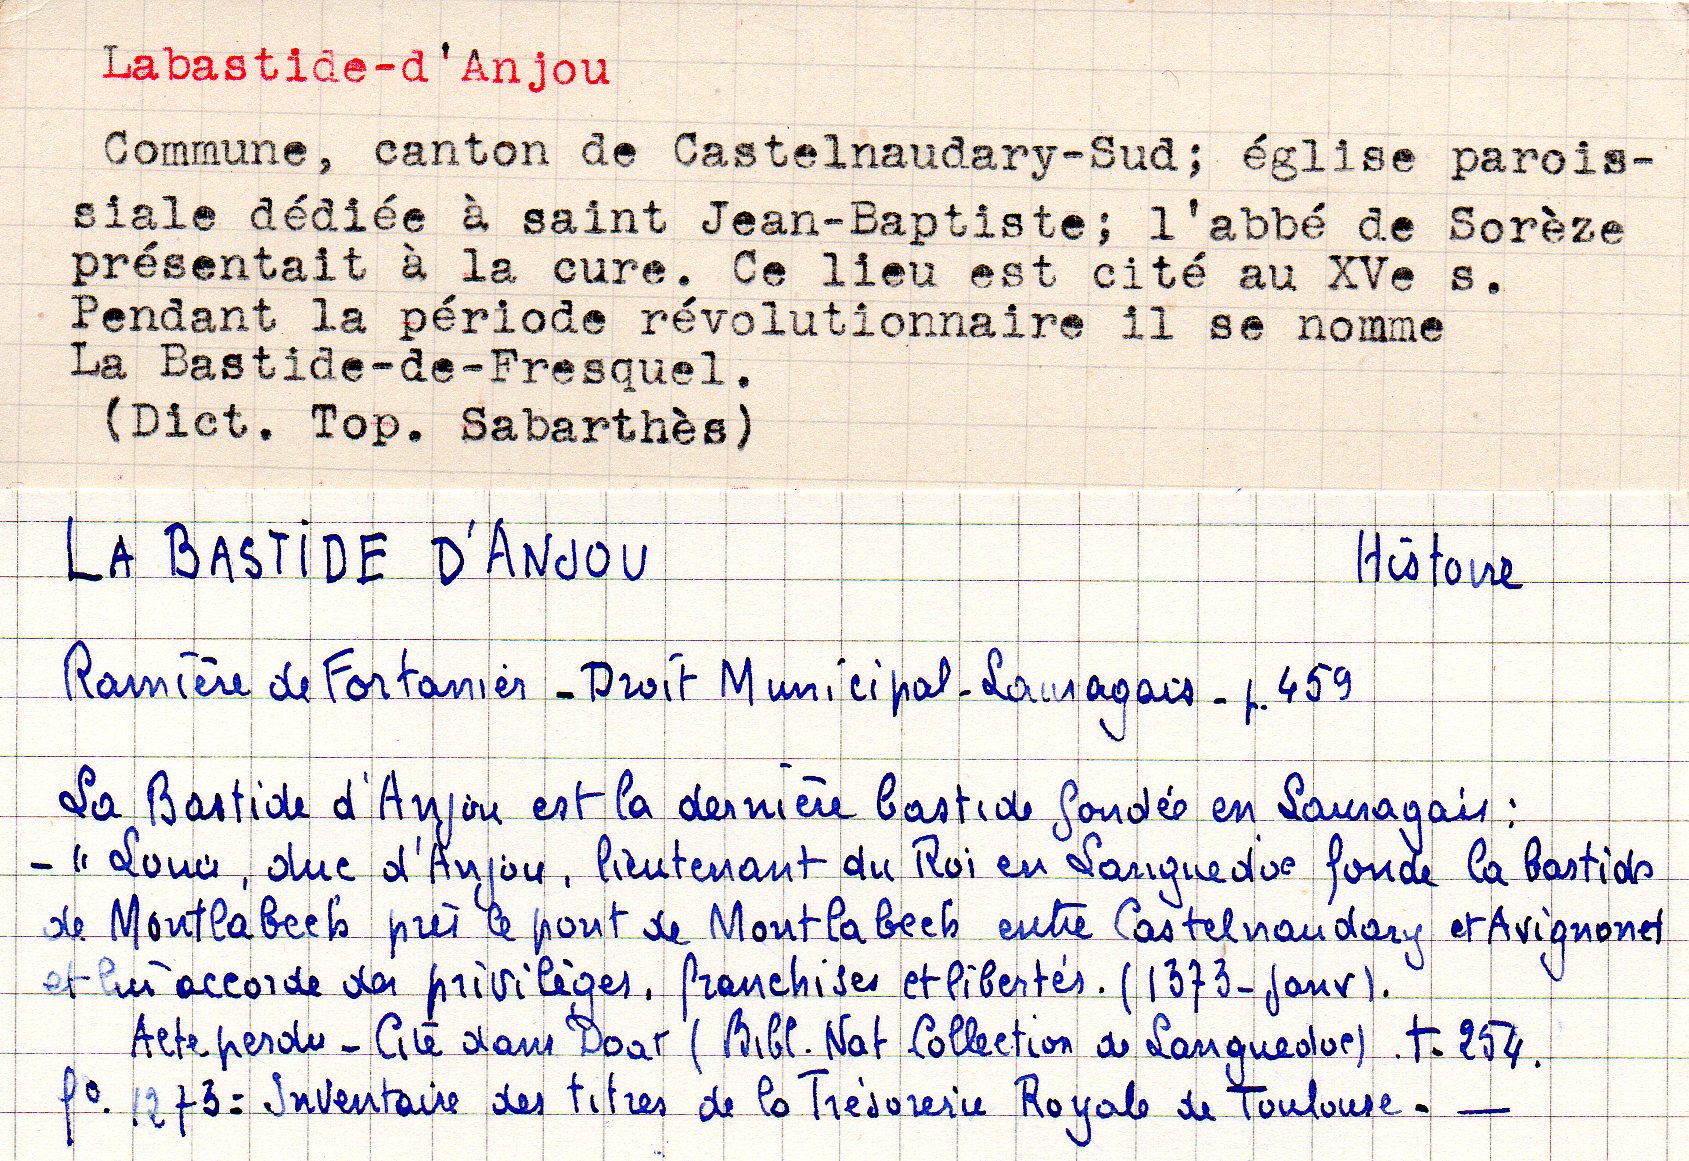 Labastide-d'Anjou
Commune, canton de Castelnaudary-Sud; église parois-
siale dédiée à saint Jean-Baptiste; l'abbé de Sorèze
présentait à la cure. Ce lieu est cité au XVe s.
Pendant la période révolutionnaire il se nomme
La Bastide-de-Fresquel.
(Dict. Top. Sabarthès)
LA BASTIDE D'ANJOU Histoire
Ramière de Fortanier - Droit Municipal - Lauragais - p. 459
La Bastide d'Anjou est la dernière bastide fondée en Lauragais :
- " Louis, duc d'Anjou, lieutenant du Roi en Languedoc fonde la bastide
de Montlabech près le pont de Montlabech entre Castelnaudary et Avignonet
et lui accorde des privilèges, franchises et libertés. (1373 - Janv).
Acte perdu - Cité dans Doat ( Bibl. Nat Collection de Languedoc) . t. 254.
f°. 1273 = Inventaire des titres de la Trésorerie Royale de Toulouse. —